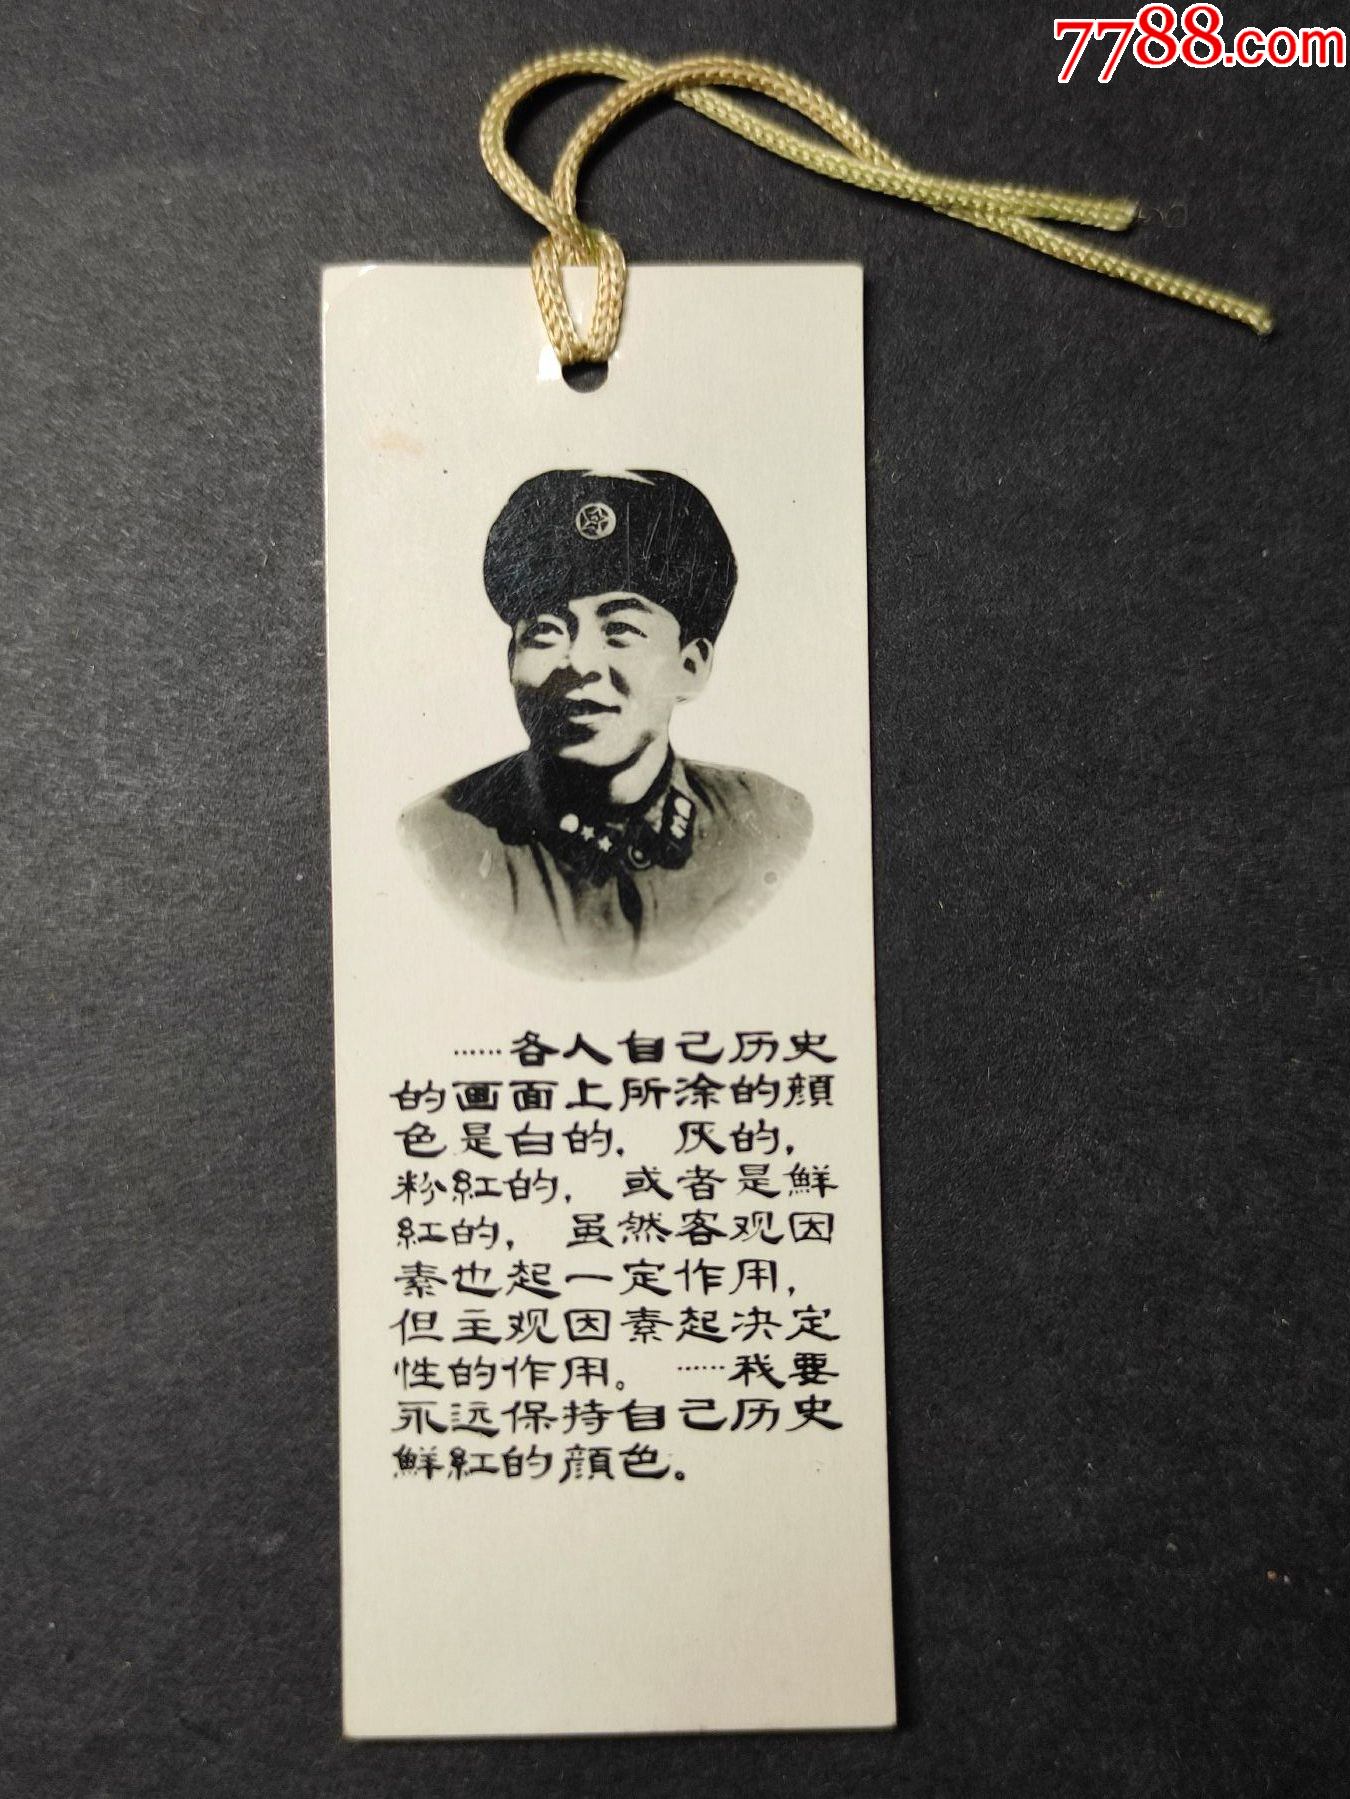 7788.com
……各人自己历史
的画面上所涂的顔
色是白的，灰的，
粉紅的，或者是鮮
紅的，虽然客观因
素也起一定作用，
但主观因素起决定
性的作用。……我要
永远保持自己历史
鮮紅的顔色。